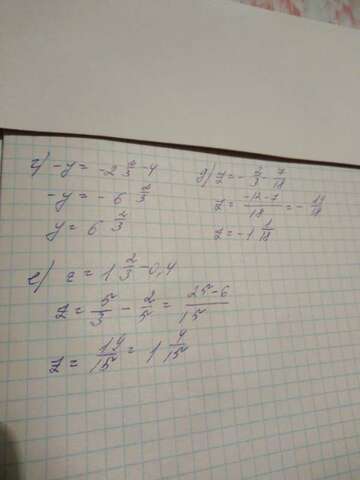 г) -y = -2 2/3 - 4
-y = -6 2/3
y = 6 2/3
д) z = -2/3 - 7/18
z = -12-7/18 = -19/18
z = -1 1/18
е) z = 1 2/3 - 0,4
z = 5/3 - 2/5 = 25-6/15
z = 19/15 = 1 4/15